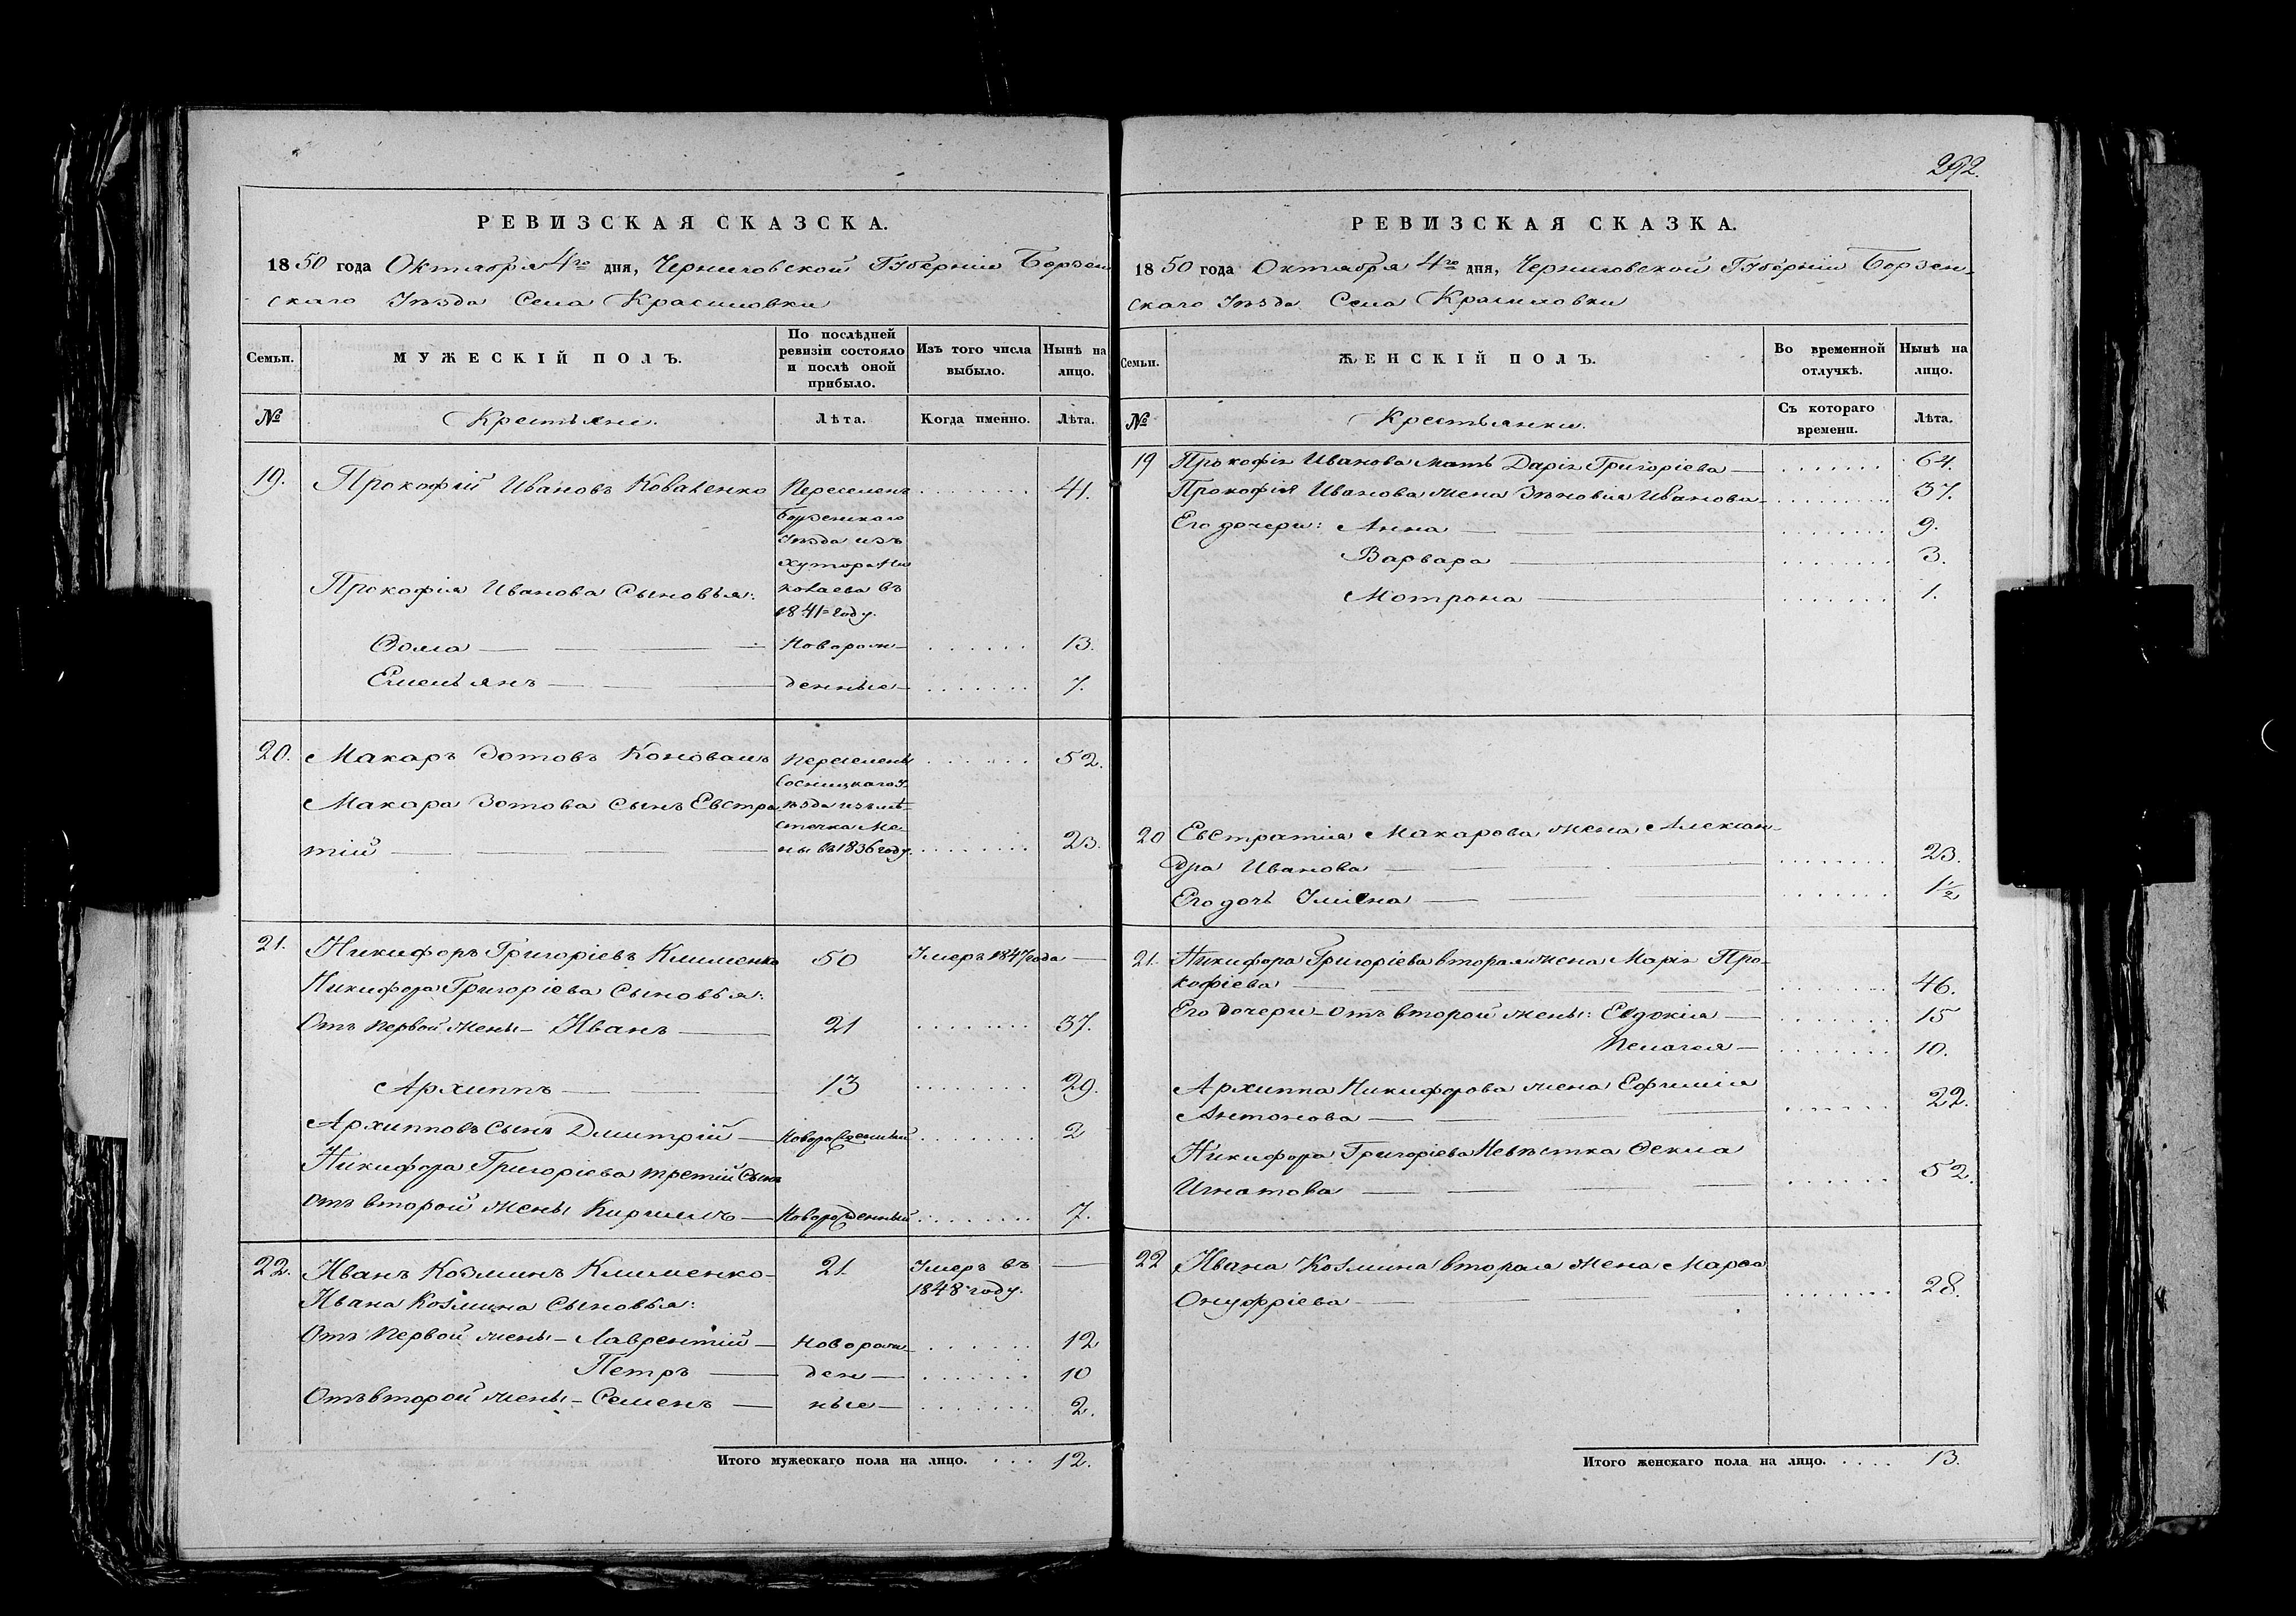 РЕВИЗСКАЯ СКАЗСКА.
1850 года Октября 4го дня, Черниговской Губерніи Борзен
скаго Уѣзда Села Красиловки
Семьи.
МУЖЕСКІЙ ПОЛЪ.
По послѣдней ревизіи состояло и послѣ оной прибыло.
Изъ того числа выбыло.
Нынѣ на лицо.
№
Крестьяне.
Лѣта.
Когда именно.
Лѣта.
19. Прокофій Ивановъ Коваленко Переселенъ 41.
Борзенскаго
Уѣзда изъ
хутора Ни
Прокофія Иванова Сыновья: колаева въ
1841 году.
Фома Новорож- 13.
Емельянъ денные 7.
20. Макаръ Зотовъ Коновалъ Переселены 52.
Сосницкаго У-
Макара Зотова сынъ Евстра ѣзда изъ мѣ-
стечка Ме-
тій ны въ 1836 году. 23.
21. Никифоръ Григоріевъ Клименко 50 Умеръ 1847 года
Никифора Григоріева Сыновья:
Отъ первой жены - Иванъ 21 37.
Архиппъ 13 29.
Архипповъ сынъ Дмитрій Новорожденный 2
Никифора Григоріева третій Сынъ
отъ второй жены Кириллъ Новорожденный 7.
22. Иванъ Козминъ Клименко 21. Умеръ въ
Ивана Козмина Сыновья: 1848 году.
Отъ первой жены - Лаврентій Новорож- 12
Петръ ден 10
Отъ второй жены - Семенъ ные 2.
Итого мужескаго пола на лицо. 12.
292.
РЕВИЗСКАЯ СКАЗКА.
1850 года Октября 4го дня, Черниговской Губерніи Борзен-
скаго Уѣзда Села Красиловки
Семьи.
ЖЕНСКІЙ ПОЛЪ.
Во временной отлучкѣ.
Нынѣ на лицо.
№
Крестьянки.
Съ котораго времени.
Лѣта.
19 Прокофія Иванова мать Дарія Григоріева 64.
Прокофія Иванова жена Зѣновія Иванова 37.
Его дочери: Анна 9.
Варвара 3.
Мотрона 1.
20 Евстратія Макарова жена Алексан-
дра Иванова 23.
Его дочь Уліяна 1½
21. Никифора Григоріева вторая жена Марія Про-
кофіева 46.
Его дочери - отъ второй жены: Евдокія 15
Пелагея 10.
Архиппа Никифорова жена Ефимія
Антонова 22.
Никифора Григоріева Невѣстка Фекла
Игнатова 52.
22 Ивана Козмина вторая жена Марѳа
Онуфріева 28.
Итого женскаго пола на лицо. 13.